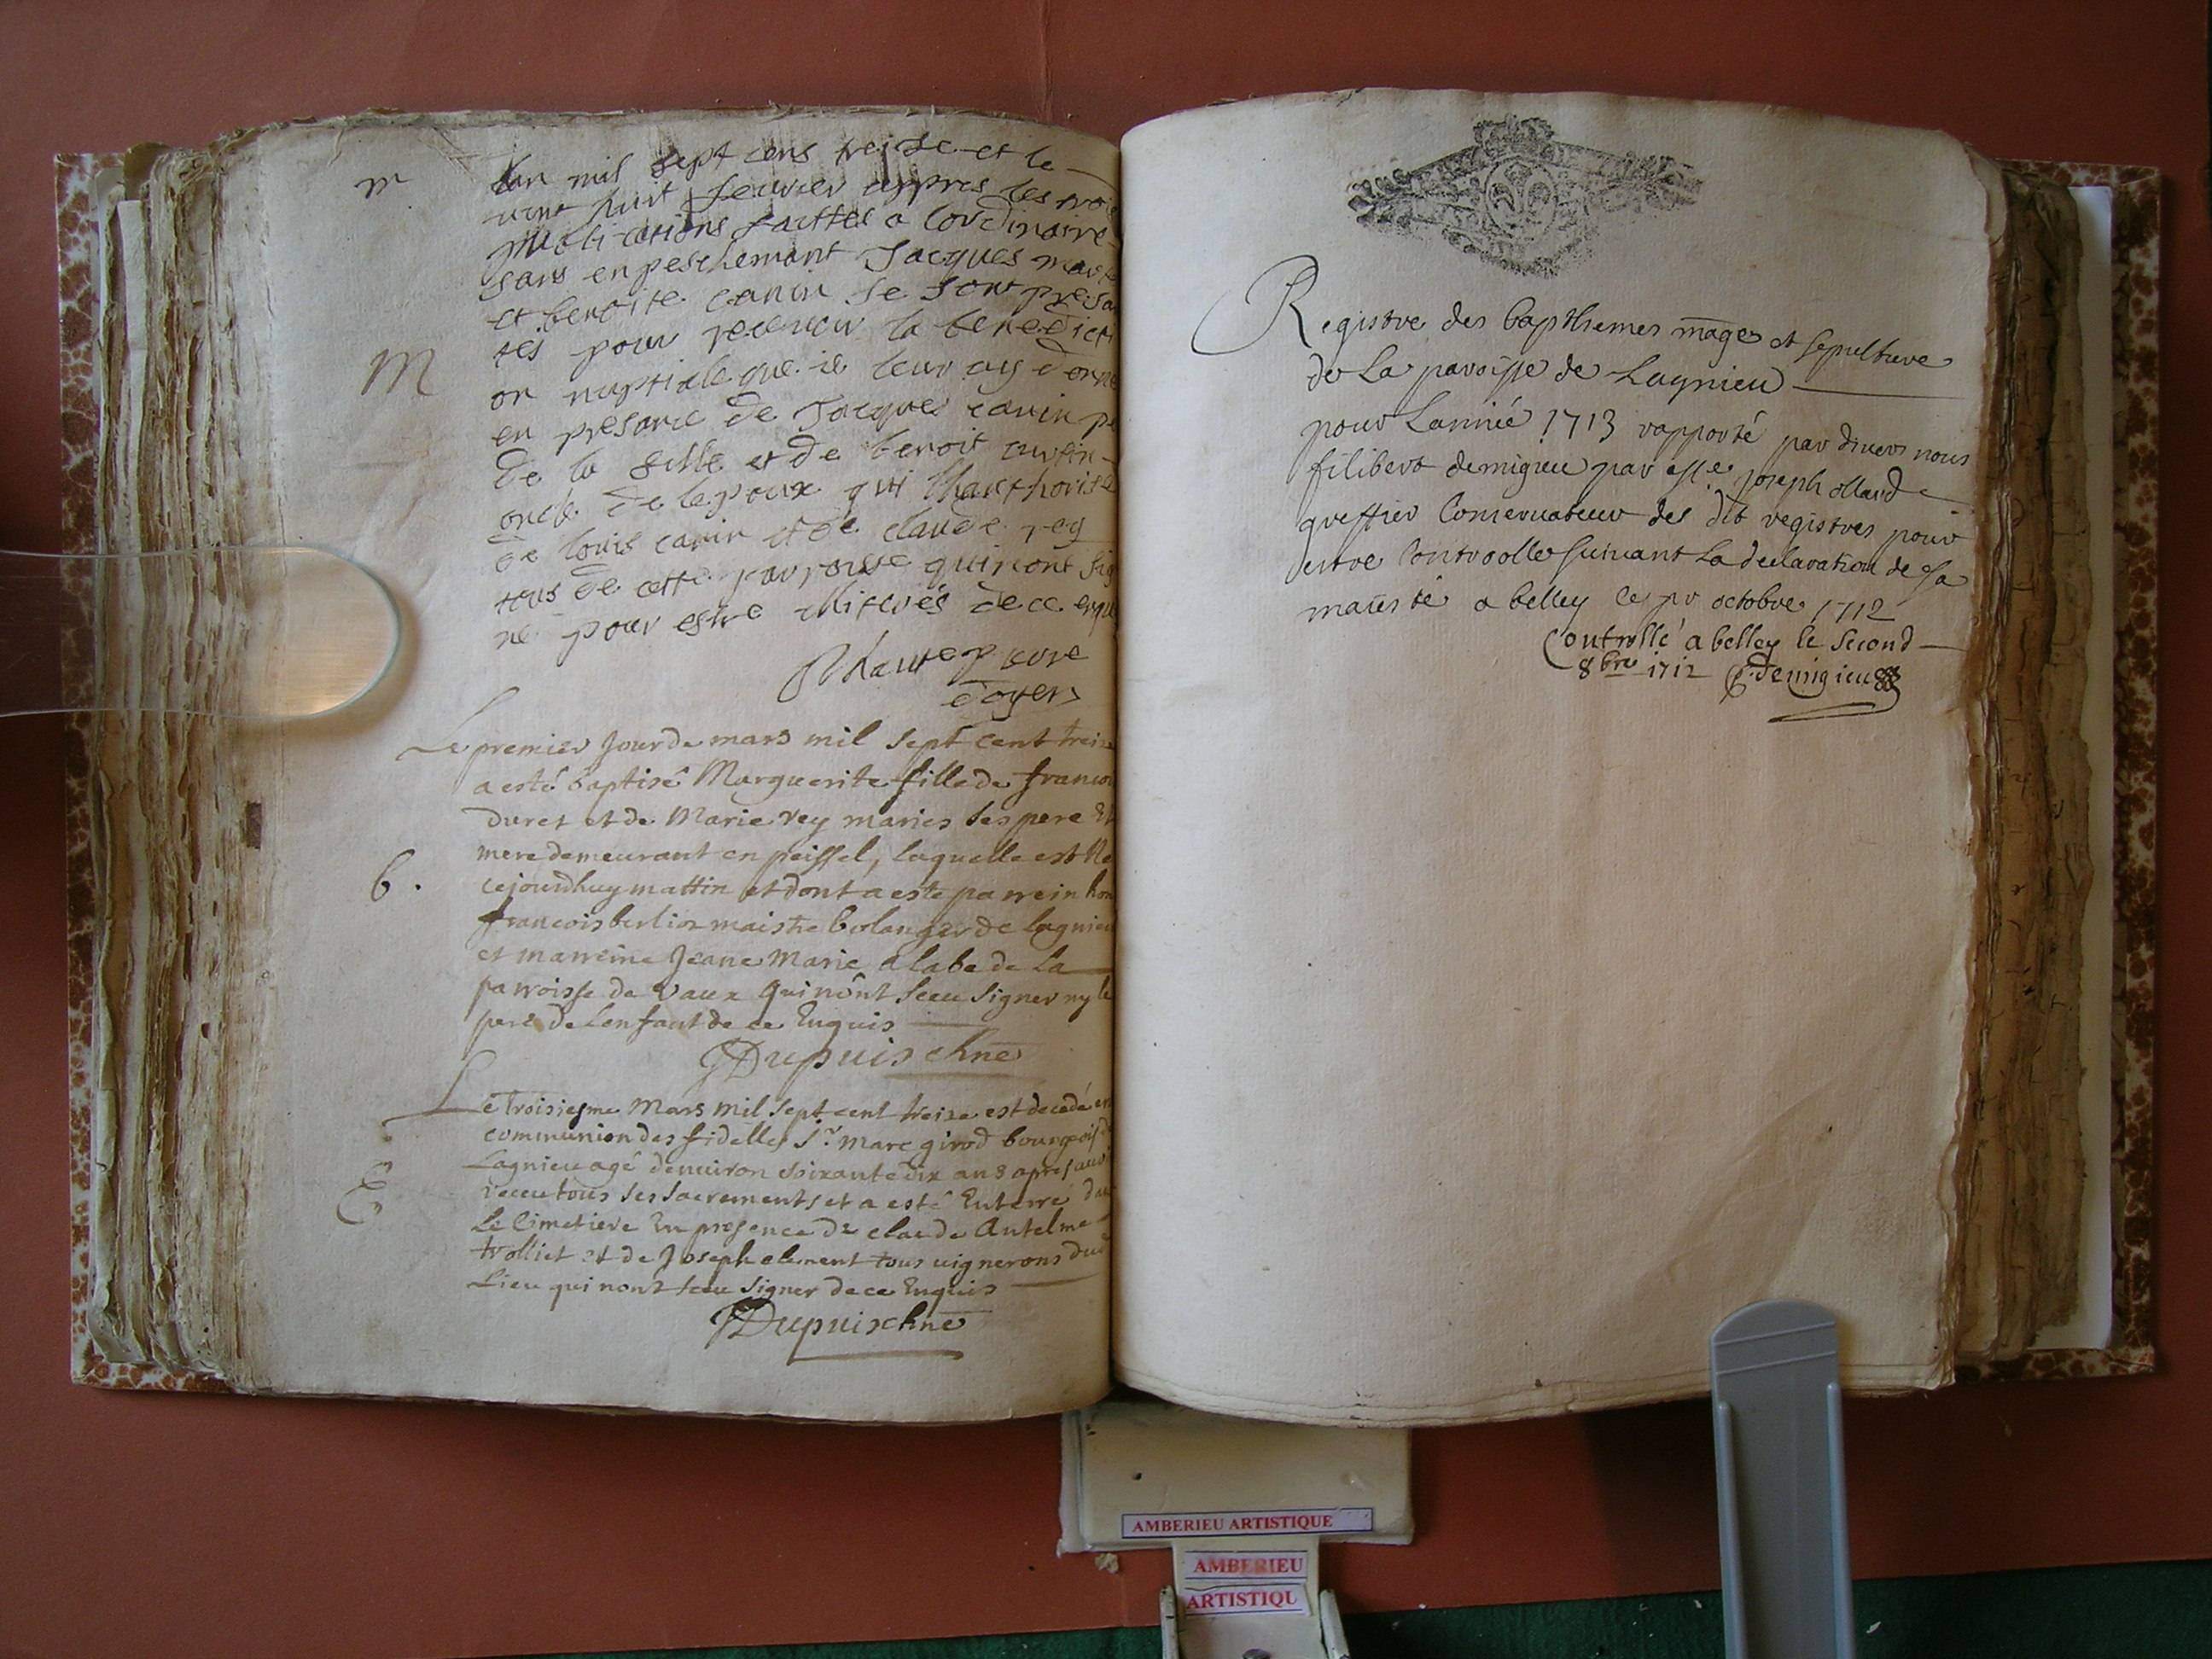 m
Lan mil sept cens treize et le
vint huit feuvrier appres les trois
publi cations faittes a lordinaire
sans enpeschemant Jacques mart
et benoite canin se sont presa
tés pour recevoir la benedicti
M
on nuptiale que ie leur ay donné
en presance de Jacques canin pe
de la fille et de benoit
oncle de lepoux qui lhauthorise
de louis canin et de claude rey
tous de cette parroisse qui nont sig
né pour estre illiterés de ce enqui
doyen
Le premier Jour de mars mil sept cent treize
a esté baptisé Marguerite fille de francoi
duret et de Marie rey mariés ses pere Et
mere demeurant en peissel, laquelle est Ne
b.
cejourdhuy mattin et dont a este parrein hon
francois berlioz maistre bolanger de lagnieu
et marreine Jeane Marie alabe de La
parroisse de Vaux Qui nônt sceu signer ny le
pere de Lenfant de ce Enquis
Dupuis chne
Le Troisiesme Mars mil sept cent treize est decedé en
communion des fidelles Sr. Marc girod bourgeois de
Lagnieu agé denuiron soixante dix ans apres auoi
E
receu tous ses sacrements et a esté Enterré dan
Le Cimetiere En presence de claude Antelme
trolliet et de Joseph clement tous uignerons dud
Lieu qui nont sceu signer de ce Enquis
Dupuis chne
Registre des bapthemes mage et sepulture
de La paroisse de Lagnieu
pour Lannée 1713 rapporté par divers nous
filibert demigieu par Joseph ollard
greffier Conservateur des dit registres pour
estre Controolle suivant La declaration de sa
maiesté a belley ce pr octobre 1712
Controllé a belley le second
8bre 1712 demigieu
AMBERIEU ARTISTIQUE
AMBERIEU
ARTISTIQU